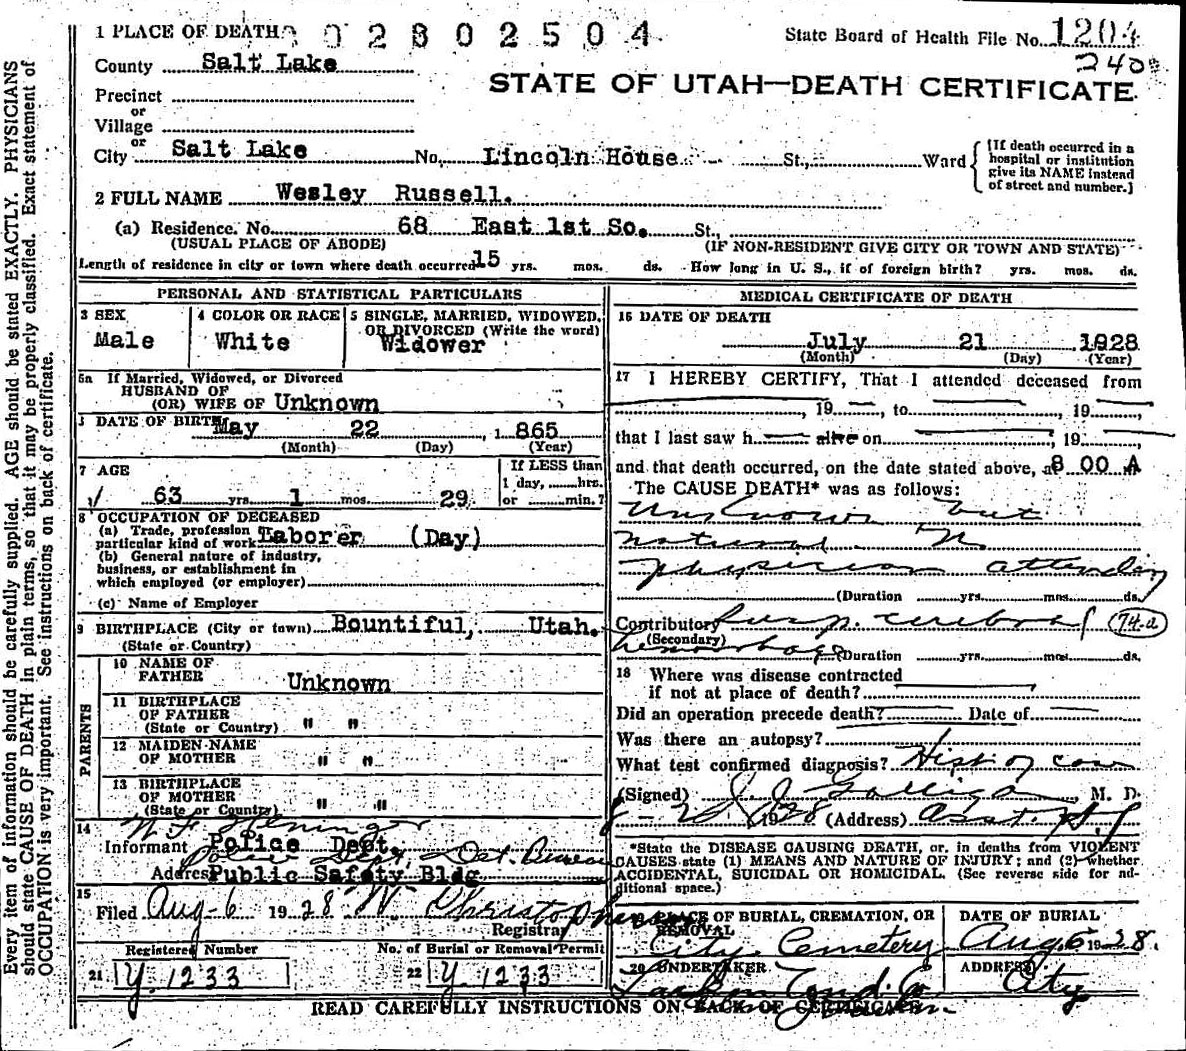 1 PLACE OF DEATH 0 2 8 0 2 5 0 4
State Board of Health File No. 1204
2408
County Salt Lake
STATE OF UTAH—DEATH CERTIFICATE
Precinct
or
Village
or
City Salt Lake No. Lincoln House St., Ward
[If death occurred in a
hospital or institution
give its NAME instead
of street and number.]
2 FULL NAME Wesley Russell.
(a) Residence. No. 68 East 1st So. St.,
(USUAL PLACE OF ABODE) (IF NON-RESIDENT GIVE CITY OR TOWN AND STATE)
Length of residence in city or town where death occurred 15 yrs. mos. ds. How long in U. S., if of foreign birth? yrs. mos. ds.
PERSONAL AND STATISTICAL PARTICULARS
3 SEX
Male
4 COLOR OR RACE
White
5 SINGLE, MARRIED, WIDOWED,
OR DIVORCED (Write the word)
Widower
5a If Married, Widowed, or Divorced
HUSBAND OF
(OR) WIFE OF Unknown
DATE OF BIRTH May 22, 1865
(Month) (Day) (Year)
7 AGE
63 yrs. 1 mos. 29
If LESS than
1 day, hrs.
or min.?
8 OCCUPATION OF DECEASED
(a) Trade, profession
particular kind of work Laborer (Day)
(b) General nature of industry,
business, or establishment in
which employed (or employer)
(c) Name of Employer
9 BIRTHPLACE (City or town) Bountiful, Utah.
(State or Country)
PARENTS
10 NAME OF
FATHER Unknown
11 BIRTHPLACE
OF FATHER
(State or Country) " "
12 MAIDEN NAME
OF MOTHER " "
13 BIRTHPLACE
OF MOTHER
(State or Country) " "
14
Informant Police Dept.
Police Dept. Det. Bureau
Address Public Safety Bldg
15
Filed Aug-6 1928
Registrar
Registered Number
21 Y. 1233
No. of Burial or Removal Permit
22 Y. 1233
MEDICAL CERTIFICATE OF DEATH
16 DATE OF DEATH
July 21 1928
(Month) (Day) (Year)
17 I HEREBY CERTIFY, That I attended deceased from
, 19 , to , 19 ,
that I last saw h alive on , 19 ,
and that death occurred, on the date stated above, at 8 00 A
The CAUSE DEATH* was as follows:
Unknown but
natural. No
physician attending
(Duration yrs. mos. ds.
Contributory cerebral 74-a
(Secondary)
hemorrhage (Duration yrs. mos. ds.
18 Where was disease contracted
if not at place of death?
Did an operation precede death? Date of
Was there an autopsy?
What test confirmed diagnosis? Hist of case
(Signed) , M. D.
1928 (Address) Asst.
*State the DISEASE CAUSING DEATH, or, in deaths from VIOLENT
CAUSES state (1) MEANS AND NATURE OF INJURY; and (2) whether
ACCIDENTAL, SUICIDAL OR HOMICIDAL. (See reverse side for additional space.)
19 PLACE OF BURIAL, CREMATION, OR
REMOVAL
City Cemetery
DATE OF BURIAL
Aug 6 1928.
20 UNDERTAKER
ADDRESS
City
READ CAREFULLY INSTRUCTIONS ON BACK OF CERTIFICATE
Every item of information should be carefully supplied. AGE should be stated EXACTLY. PHYSICIANS
should state CAUSE OF DEATH in plain terms, so that it may be properly classified. Exact statement of
OCCUPATION is very important. See instructions on back of certificate.